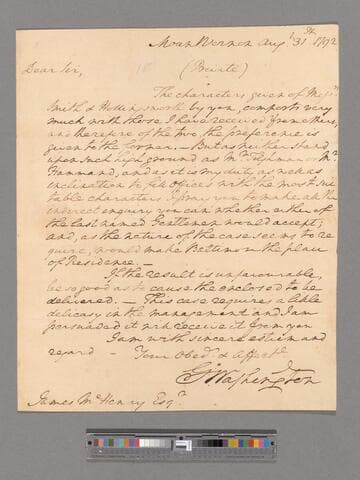 Mount Vernon Aug. 31st 1792
Dear Sir,
(Private)
The characters given of Messrs
Smith & Hollingsworth by you, comports very
much with those I have received from others,
and therefore of the two, the preference is
given to the former. — But as neither stand
upon such high ground as Mr. Tilghman or Mr.
Hammond, and as it is my duty as well as
inclination to fill offices with the most sui
table characters I pray you to make all the
indirect enquiry you can whether either of
the last named Gentlemen would accept;
and, as the nature of the case seems to re
quire, would make Baltimore the place
of Residence. —
If the result is unfavourable,
be so good as to cause the enclosed to be
delivered. — This case requires a little
delicacy in the management and I am
persuaded it will receive it from you
I am with sincere esteem and
regard — Your Obedt. & Affecte.
Go: Washington
James McHenry Esqr.